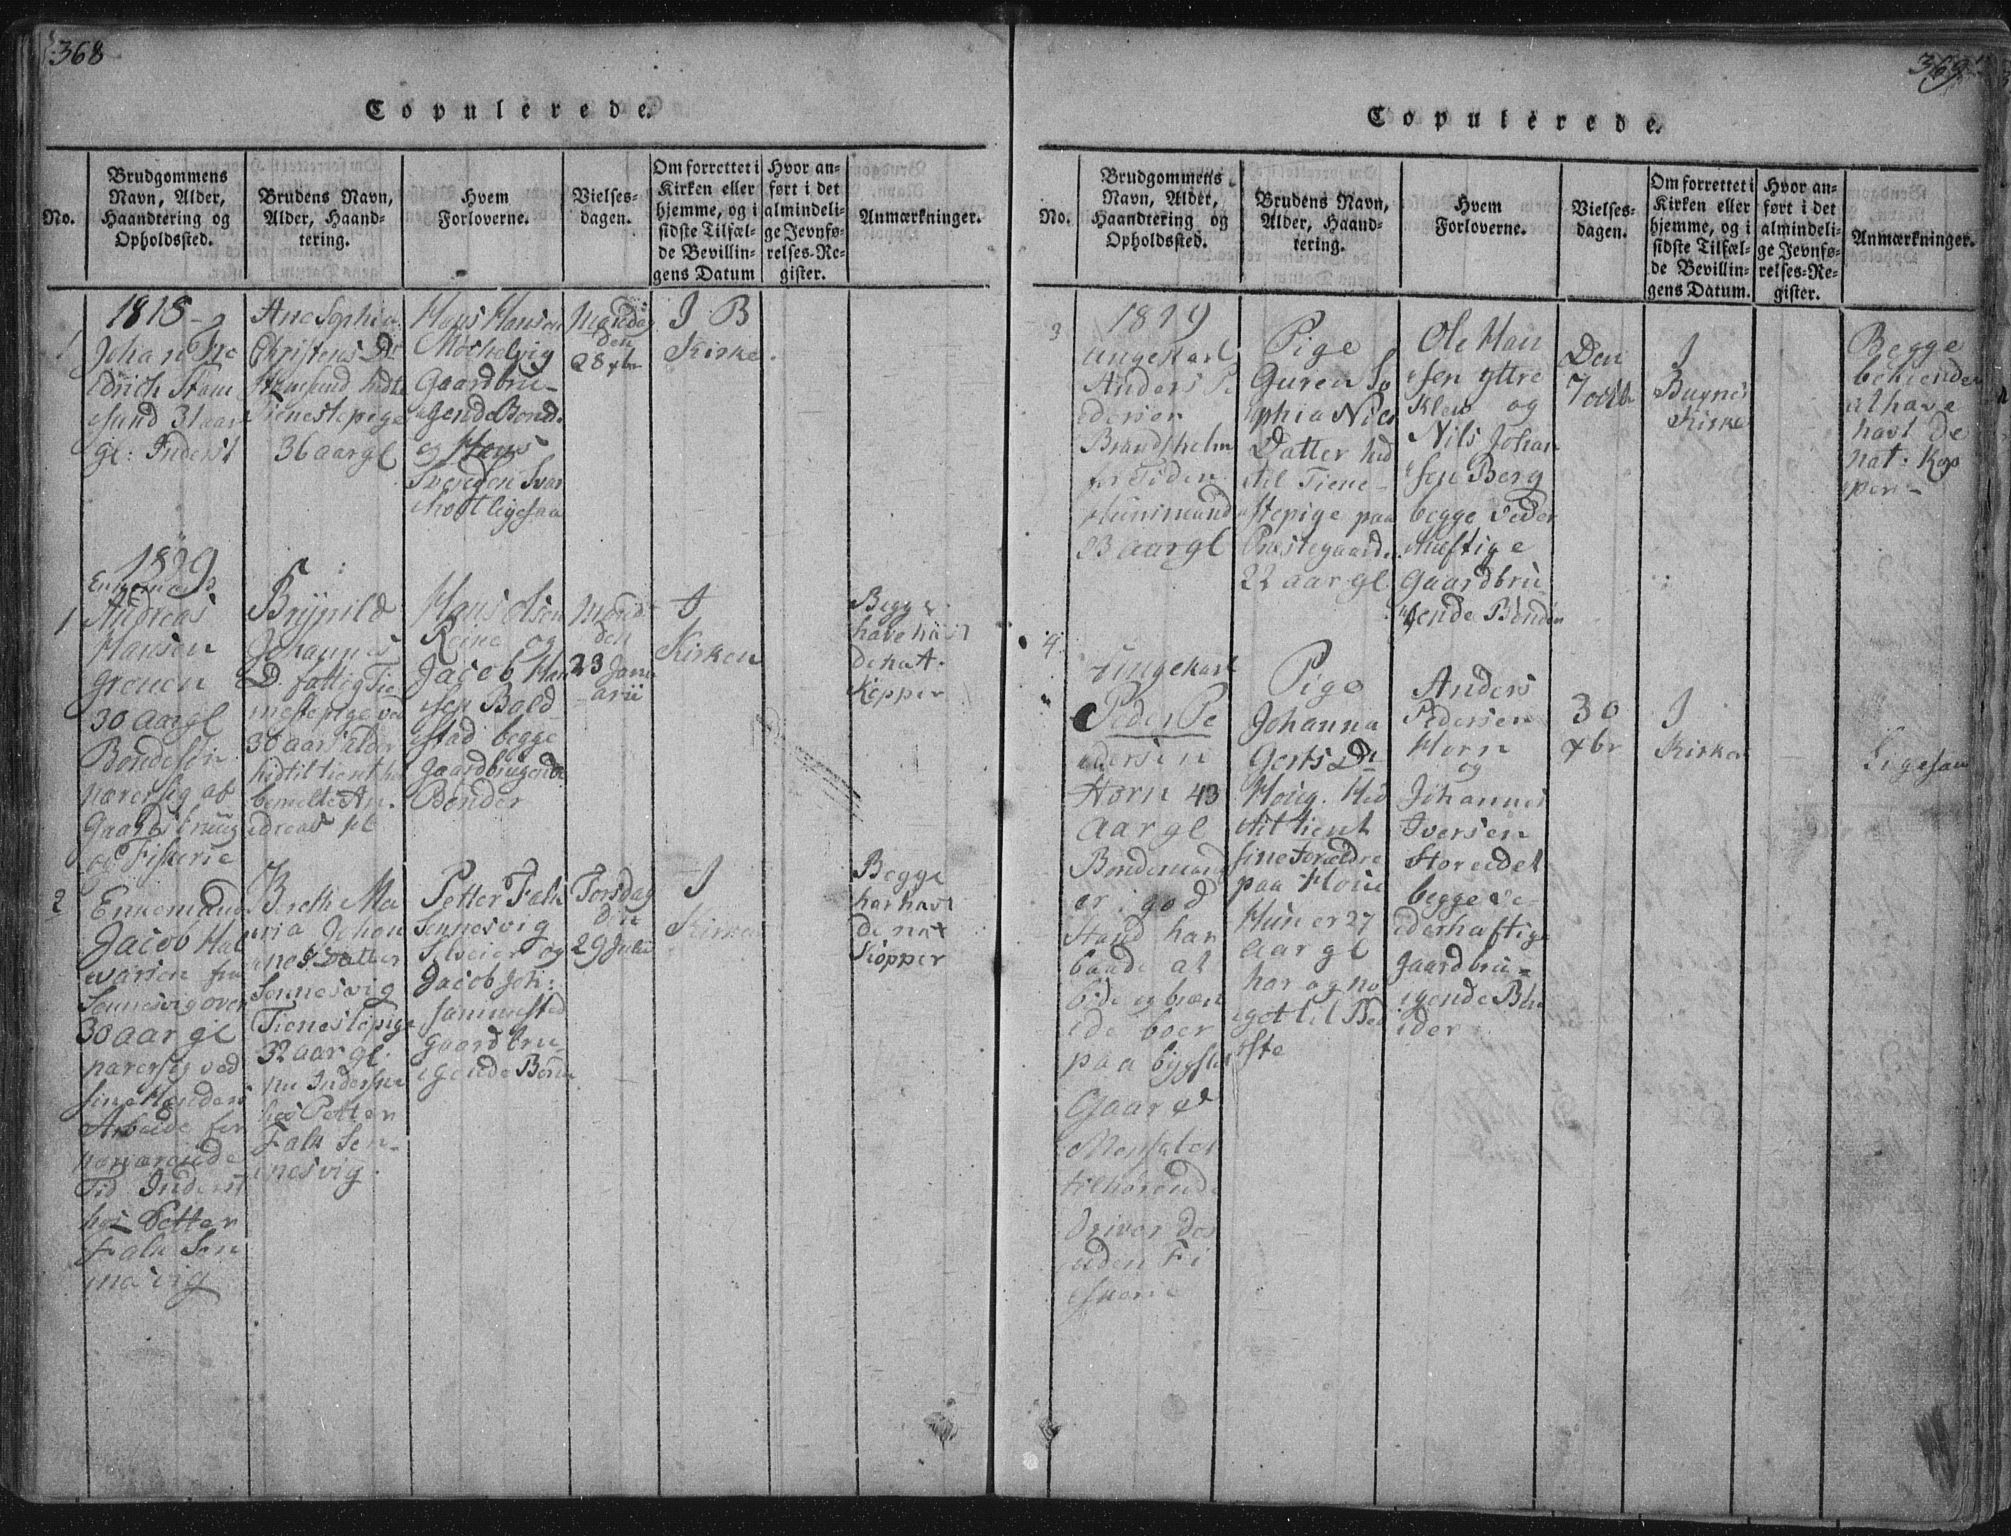 368
Copulerede.
No.
Brudgommens
Navn, Alder,
Haandtering og
Opholdssted.
Brudens Navn,
Alder, Haand-
tering.
Hvem
Forloverne.
Vielses-
dagen.
Om forrettet i
Kirken eller
hjemme, og i
sidste Tilfæl-
de Bevillin-
gens Datum
Hvor an-
ført i det
almindeli-
ge Jevnfø-
relses-Re-
gister.
Anmærkninger.
1818
1
Johan Fre
drich Stam
sund 31 aar
gl: Inderst
Ane Sophia
Christens Dt
Stamsund hidtil
Tienestepige
36 aar gl
Hans Hansen
Gaardbru-
gende Bond.
og Hans
Svendsen Svar
holt ligesaa
Mandag
den
28 xbr
I B
Kirke.
1819
1
Enkemand
Andreas
Hansen
30 Aar gl
Bondesøn
nærer sig af
Gaardsbrug
og Fiskerie
Brynild
Johannes
D. fattig Tie
nestepige ved
30 aars alder
hidtil tient hos
bemelte An-
dreas
Hans Olsen
Reine og
Jacob Han
sen Bold
stad begge
Gaardbrugende
Bønder
Mand
den
23 Janu
arii
I
Kirken
Begge
have havt
de nat.
Kopper
2
Enkemand
Jacob Hal
varsen fra
Sennesvig over
30 aar gl
nærer sig ved
sine Hænders
Arbeide for
nærværende
Tid Inderst
hos Petter
Falk Sen
nesvig
Bereth Ma
ria Johan
nes Datter
Sennesvig
Tienestepige
32 aar gl.
nu Inderste
hos Petter
Falk Sen-
nesvig.
Petter Falk
Sennesvig
Selveier og
Jacob Joh:
Gaardbru
gende Bønder
Torsdag
den
29 Julii
I
Kirke
Begge
har havt
de nat
Kopper
369
Copulerede.
No.
Brudgommens
Navn, Alder,
Haandtering og
Opholdssted.
Brudens Navn,
Alder, Haand-
tering.
Hvem
Forloverne.
Vielses-
dagen.
Om forrettet i
Kirken eller
hjemme, og i
sidste Tilfæl-
de Bevillin-
gens Datum.
Hvor an-
ført i det
almindeli-
ge Jevnfø-
relses-Re-
gister.
Anmærkninger.
3
1819
Ungekarl
Anders Pe
dersen
Brandsholm
for Tiden
Huusmand
23 aar gl
Pige
Guren So
phia Niels
Datter hid
til Tiene-
stepige paa
Præstegaard.
22 aar gl.
Ole Han
sen yttre
Klev og
Nils Johan
sen Berg
begge Veder
hæftige
Gaardbru
gende Bønder
Den
7 octbr
I
Buxnes
Kirke
Begge
bekiender
at have
havt de
nat: Kop
per-
4
Ungekarl
Peder Pe
dersen
Horn 43
Aar gl
Bondemand
er i god
Stand har
baade at
byde og bræn
de boer
paa bygslet
Gaard
tilhørende
Driver des
uden Fi
skerie
Pige
Johanna
Gerts Dt
Houg. Hid
til tient
sine Forældre
paa Houg
Hun er 27
aar gl
har og no
get til Bed
ste
Anders
Pedersen
Horn
og
Johannes
Iversen
Storeidet
begge Ve-
derhæftige
Gaardbru-
gende
30
xbr
I
Kirken
Ligesaa